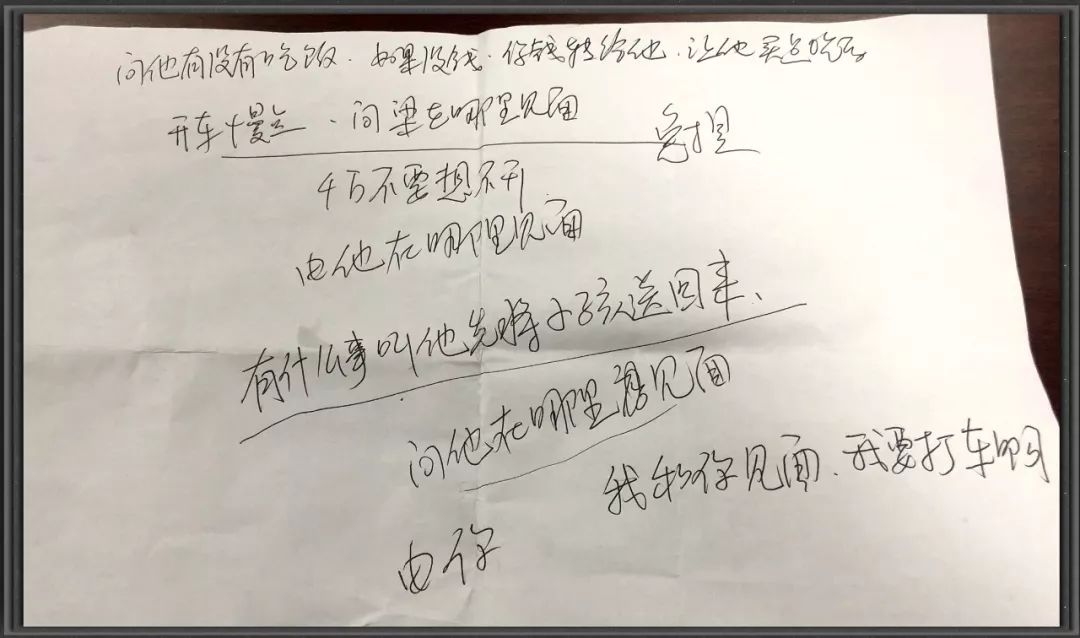 问他有没有吃饭.如果没钱.你转给他.让他买点吃
开车慢点、问梁在哪里见面
千万不要想不开
由他在哪里见面
有什么事叫他先将小孩送回来、
问他在哪里见面
我和你见面.我要打车
由你